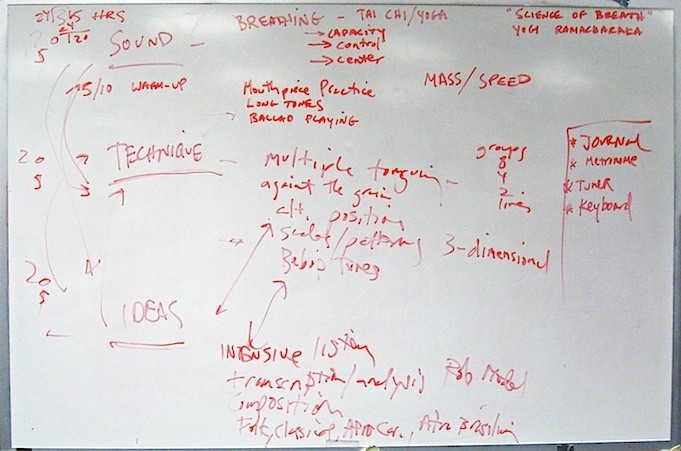 HRS
SOUND -
BREATHING - TAI CHI/YOGA
→ CAPACITY
→ control
→ center
"SCIENCE OF BREATH"
YOGI RAMACHARAKA
5/10 WARM-UP
Mouthpiece Practice
LONG TONES
BALLAD PLAYING
MASS/SPEED
20
5
TECHNIQUE -
multiple tonguing -
against the grain
alt. position
scales/patterns 3-dimensional
Bebop Tunes
groups
8
4
2
lines
* JOURNAL
* METRONOME
* TUNER
* Keyboard
20
5
IDEAS
INTENSIVE listening
transcription/analysis Role Model
Composition
Folk, Classical, AFRO Car., Afro Brasilian